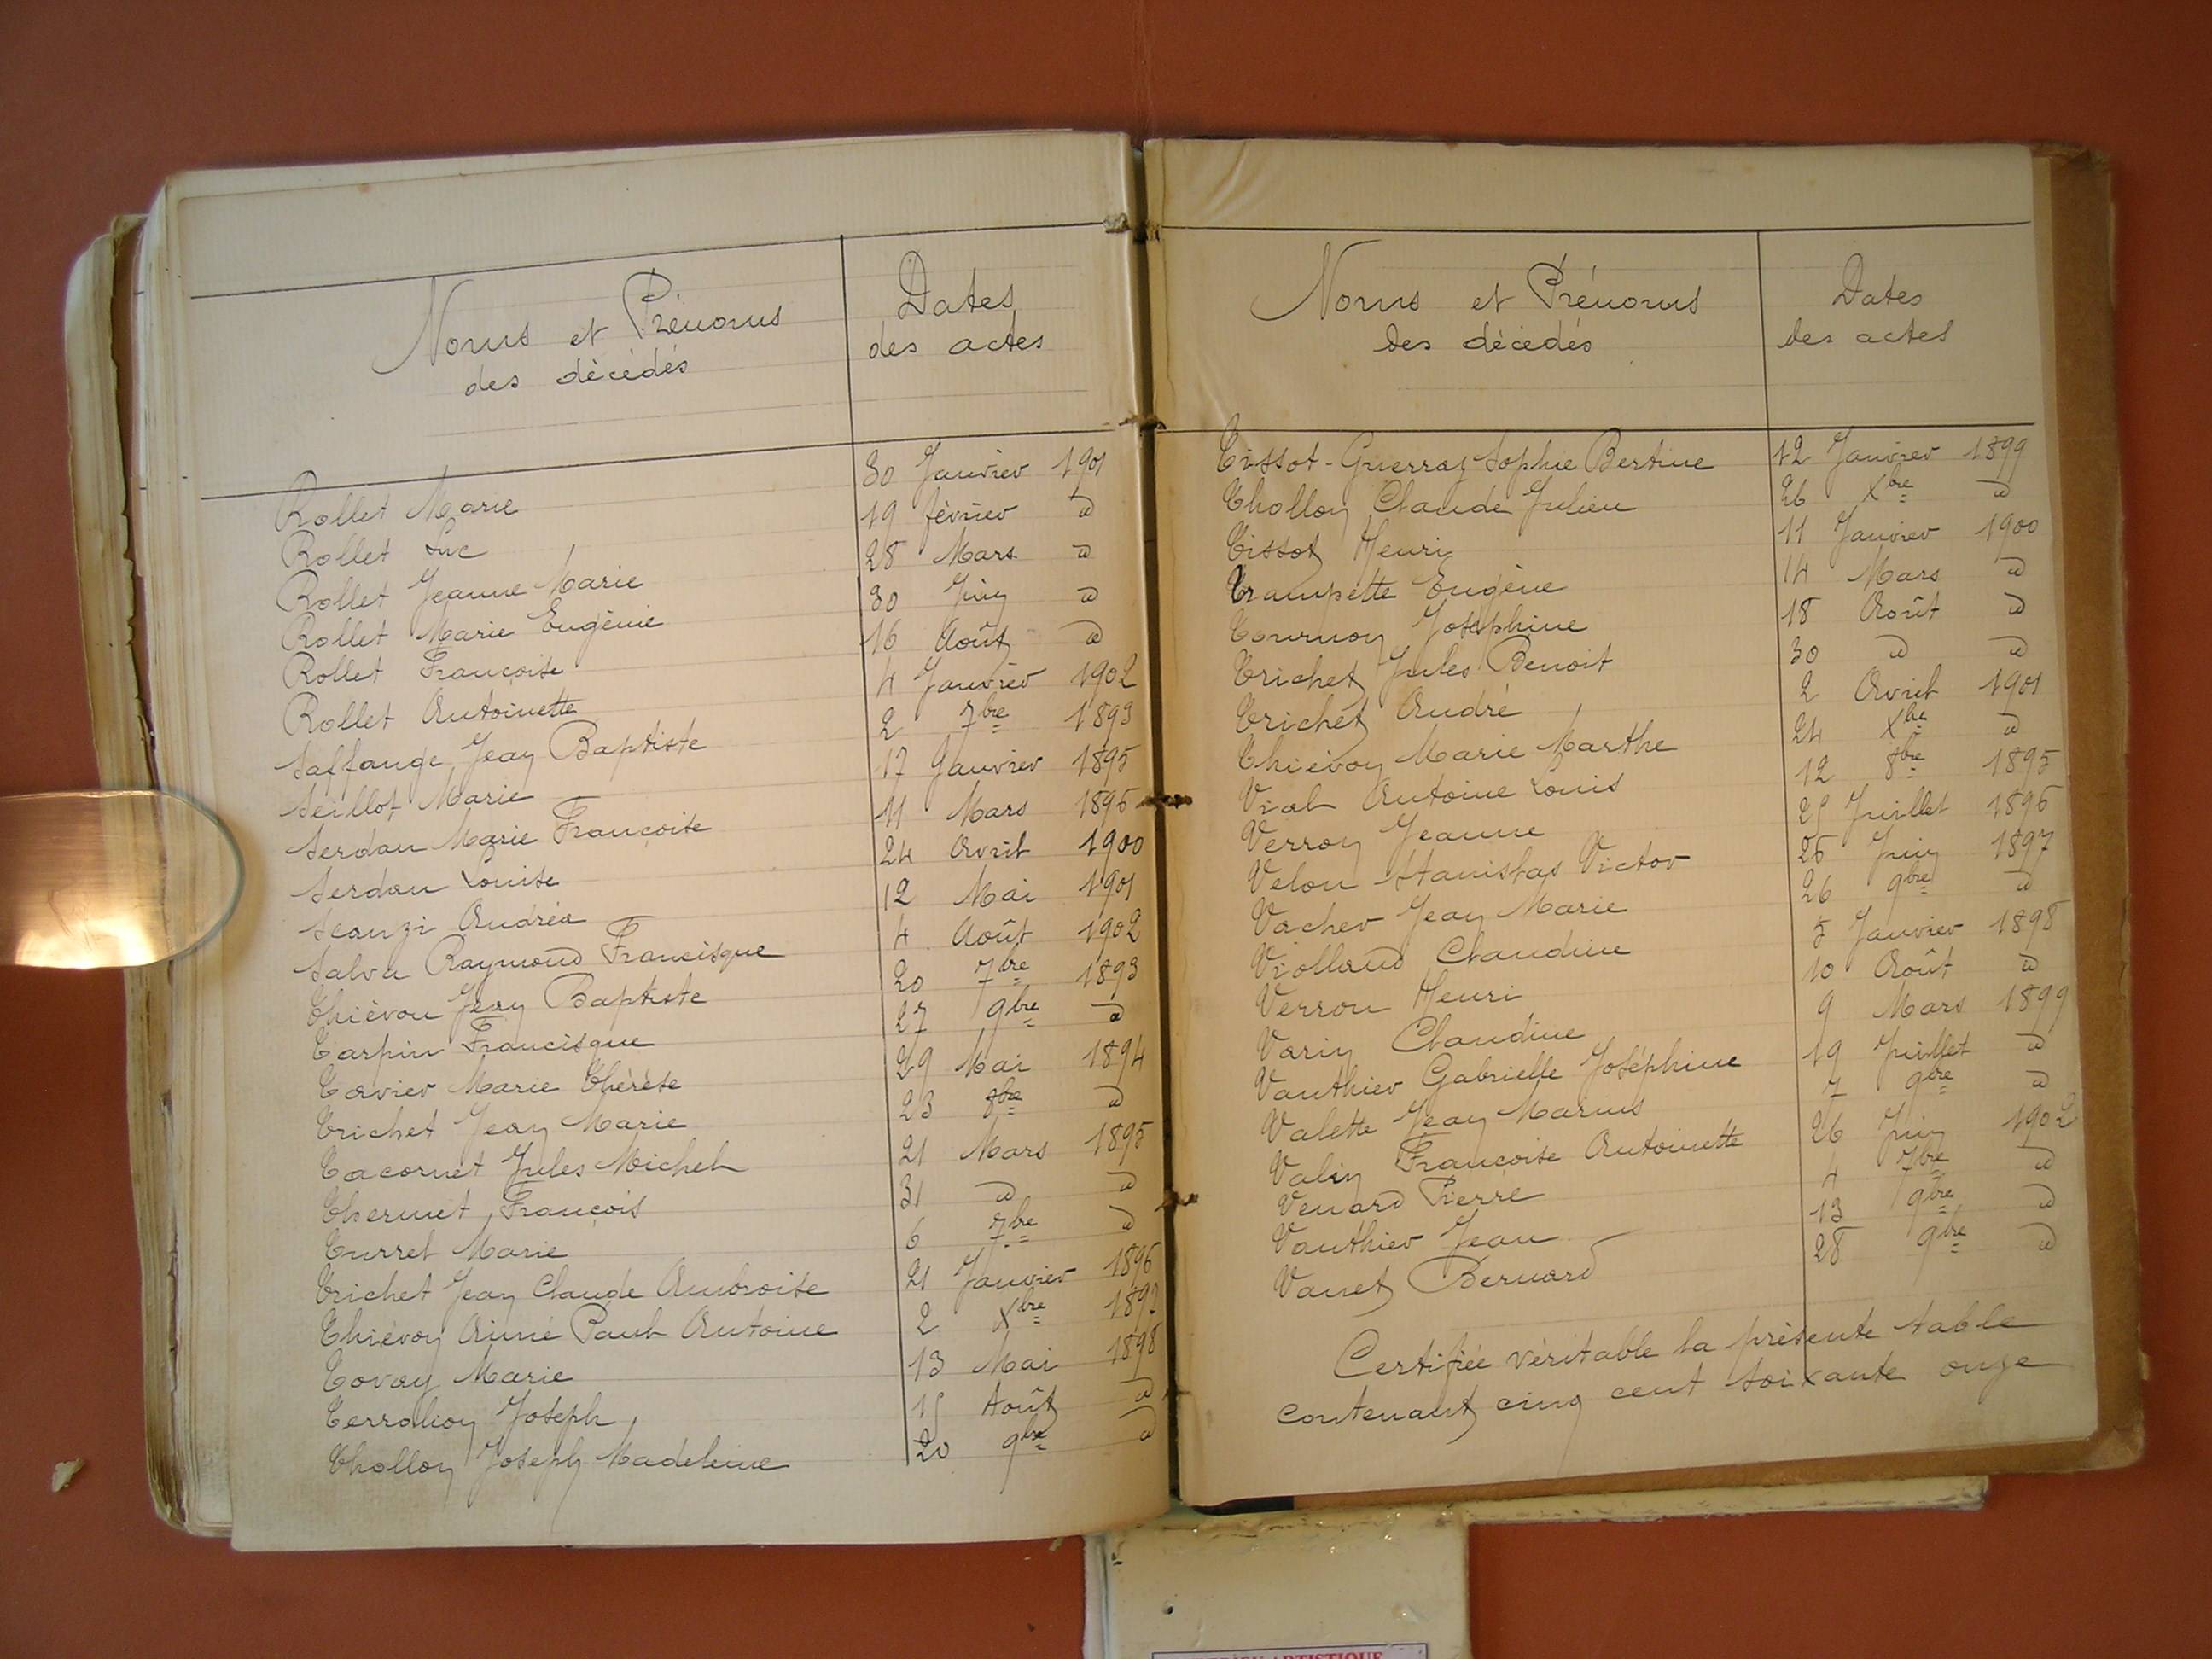 Noms et Prénoms
des décédés
Dates
des actes
Rollet Marie 30 Janvier 1901
Rollet Luc 19 février d
Rollet Jeanne Marie 28 Mars d
Rollet Marie Eugénie 30 Juin d
Rollet Françoise 16 Août d
Rollet Antoinette 4 Janvier 1902
Saffange Jean Baptiste 2 7bre 1893
Seillot Marie 17 Janvier 1895
Serdan Marie Françoise 11 Mars 1895
Serdan Louise 24 Avril 1900
Scanzi Andréa 12 Mai 1901
Salva Raymond Francisque 4 Août 1902
Thiévon Jean Baptiste 20 7bre 1893
Tarpin Francisque 27 9bre d
Tavier Marie Thérèse 29 Mai 1894
Trichet Jean Marie 23 8bre d
Tacornet Jules Michel 21 Mars 1895
Thermet François 31 d d
Turrel Marie 6 7bre d
Trichet Jean Claude Ambroise 21 Janvier 1896
Thiévon Aimé Paul Antoine 2 Xbre 1897
Tovay Marie 13 Mai 1898
Joseph 15 Août d
Thollon Joseph Madeleine 20 9bre d
Noms et Prénoms
des décédés
Dates
des actes
Tissot-Guerraz Sophie Bertine 12 Janvier 1899
Thollon Claude Julien 26 Xbre d
Tissot Henri 11 Janvier 1900
Trampette Eugène 14 Mars d
Tournon Joséphine 18 Août d
Trichet Jules Benoit 30 d d
Trichet André 2 Avril 1901
Thiévon Marie Marthe 24 Xbre d
Vial Antoine Louis 12 8bre 1895
Verron Jeanne 25 Juillet 1896
Velon Stanislas Victor 26 Juin 1897
Vacher Jean Marie 26 9bre d
Violland Claudine 5 Janvier 1898
Verron Henri 10 Août d
Varin Claudine 9 Mars 1899
Vauthier Gabrielle Joséphine 19 Juillet d
Valette Jean Marius 7 9bre d
Valin Françoise Antoinette 26 Juin 1902
Venard Pierre 4 7bre d
Vauthier Jean 13 9bre d
Vanet Bernard 28 9bre d
Certifiée véritable la présente table
contenant cinq cent soixante onze
ARTISTIQUE